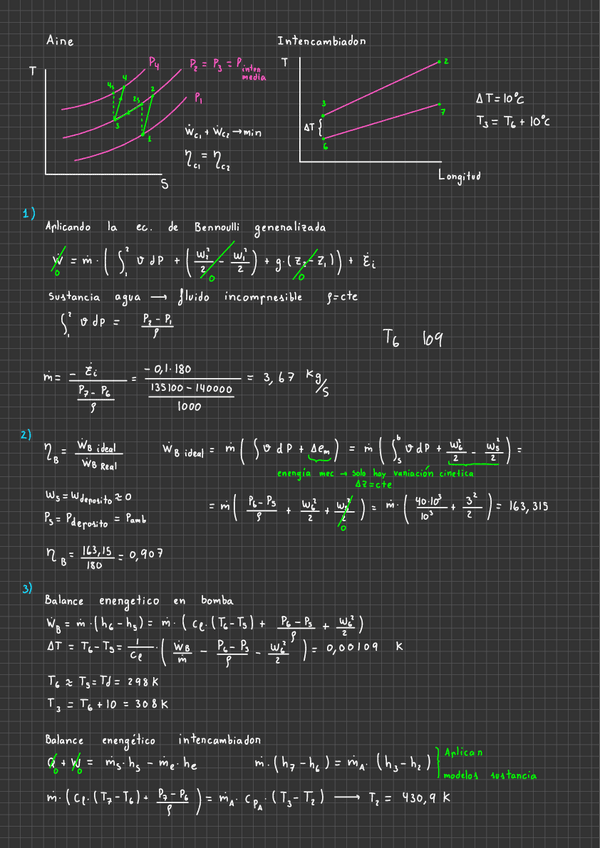 Aire
Intercambiador
T
P4
P2 = P3 = P intermedia
P1
4s
4
2s
2
3
1
Ẇc1 + Ẇc2 → min
ηc1 = ηc2
S
T
2
3
ΔT
7
6
ΔT = 10°C
T3 = T6 + 10°C
Longitud
1)
Aplicando la ec. de Bernoulli generalizada
Ẇ = ṁ · ( ∫₁² v dP + ( w2²/2 − w1²/2 ) + g · (Z2 − Z1) ) + Ėi
0 0 0
Sustancia agua → fluido incompresible ρ=cte
∫₁² v dP = (P2 − P1)/ρ
T6 109
ṁ = − Ėi / ((P7 − P6)/ρ) = −0,1·180 / ((135100 − 140000)/1000) = 3,67 kg/s
2)
ηB = ẆB ideal / ẆB Real
ẆB ideal = ṁ ( ∫ v dP + Δem ) = ṁ ( ∫₅⁶ v dP + w6²/2 − w5²/2 ) =
energía mec → solo hay variación cinetica
ΔZ = cte
w5 = w deposito ≈ 0
P5 = P deposito = Pamb
= ṁ ( (P6 − P5)/ρ + w6²/2 + w5²/2 ) = ṁ · ( 40·10³/10³ + 3²/2 ) = 163,315
0
ηB = 163,15/180 = 0,907
3)
Balance energetico en bomba
ẆB = ṁ · (h6 − h5) = ṁ · ( cl · (T6 − T5) + (P6 − P5)/ρ + w6²/2 )
ΔT = T6 − T5 = 1/cl · ( ẆB/ṁ − (P6 − P5)/ρ − w6²/2 ) = 0,00109 K
T6 ≈ T5 = Td = 298 K
T3 = T6 + 10 = 308 K
Balance energético intercambiador
Q̇ + Ẇ = ṁs · hs − ṁe · he ṁ · (h7 − h6) = ṁA · (h3 − h2)
0 0
Aplicar
modelos sustancia
ṁ · ( cl · (T7 − T6) + (P7 − P6)/ρ ) = ṁA · cPA · (T3 − T2) → T2 = 430,9 K